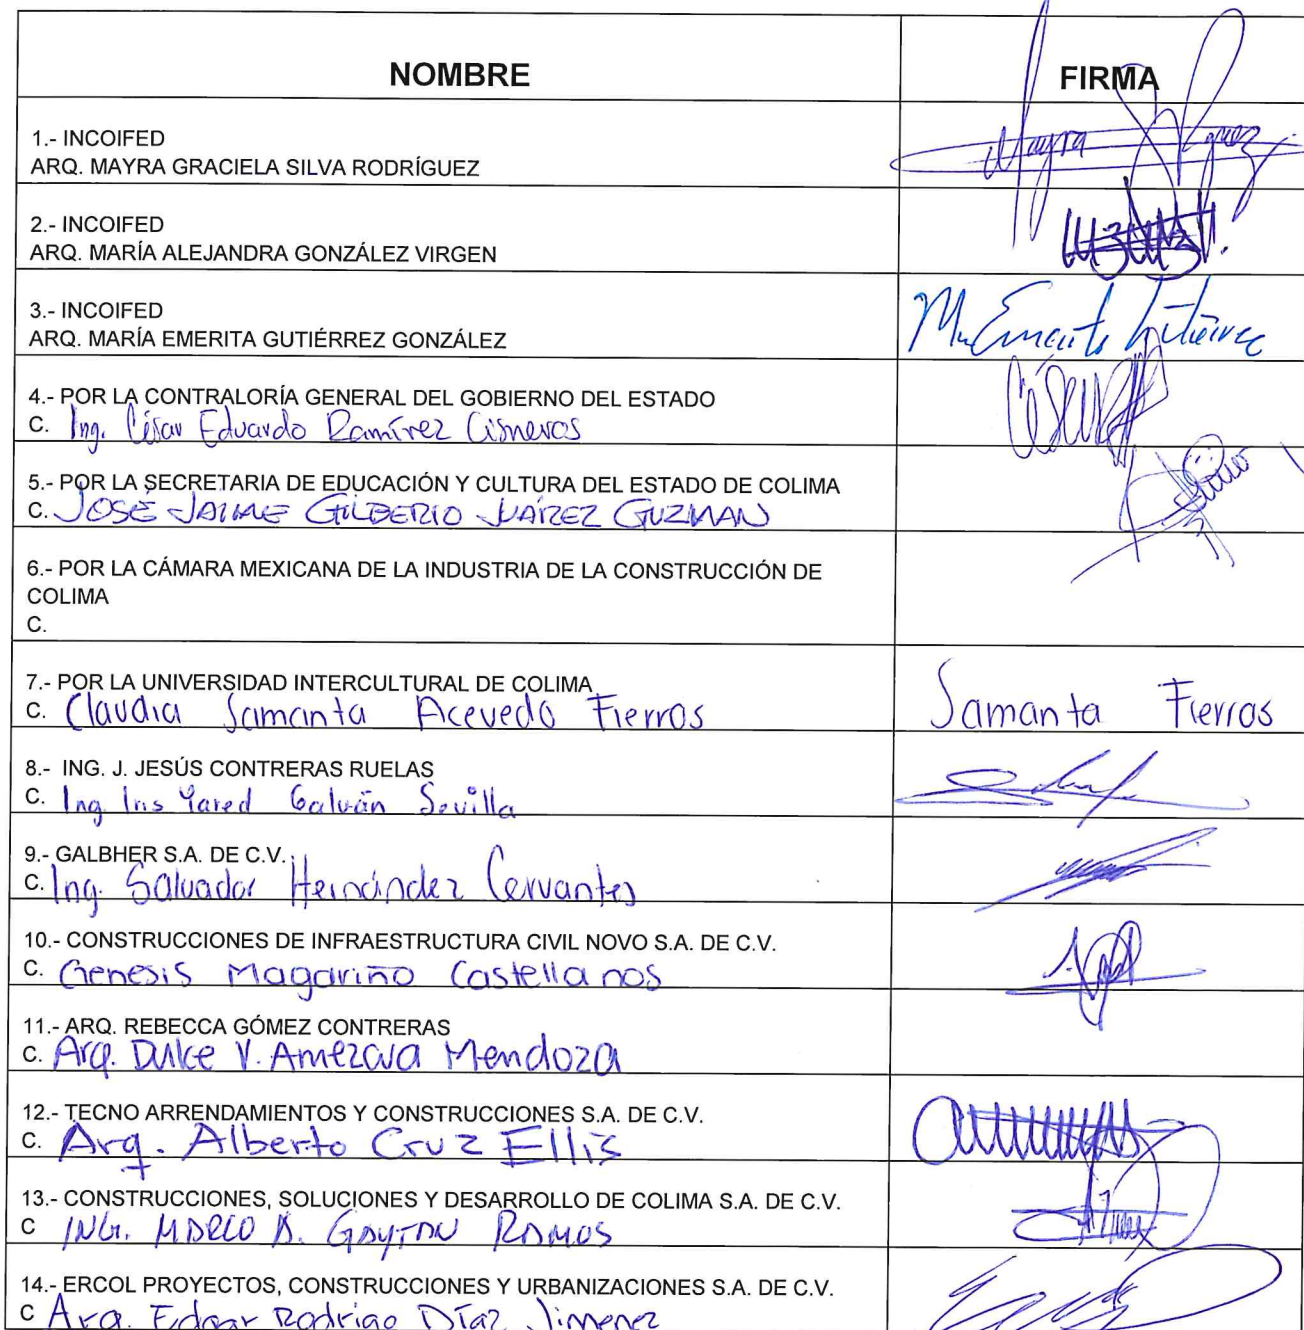 NOMBRE FIRMA
1.- INCOIFED
ARQ. MAYRA GRACIELA SILVA RODRÍGUEZ
Mayra
2.- INCOIFED
ARQ. MARÍA ALEJANDRA GONZÁLEZ VIRGEN
3.- INCOIFED
ARQ. MARÍA EMERITA GUTIÉRREZ GONZÁLEZ
4.- POR LA CONTRALORÍA GENERAL DEL GOBIERNO DEL ESTADO
C. Ing. César Eduardo Ramírez Cisneros
5.- POR LA SECRETARIA DE EDUCACIÓN Y CULTURA DEL ESTADO DE COLIMA
C. JOSÉ JAIME GILBERTO JUÁREZ GUZMAN
6.- POR LA CÁMARA MEXICANA DE LA INDUSTRIA DE LA CONSTRUCCIÓN DE
COLIMA
C.
7.- POR LA UNIVERSIDAD INTERCULTURAL DE COLIMA
C. Claudia Samanta Acevedo Fierros Samanta Fierros
8.- ING. J. JESÚS CONTRERAS RUELAS
C. Ing. Iris Yared Galván Sevilla
9.- GALBHER S.A. DE C.V.
C. Ing. Salvador Hernández Cervantes
10.- CONSTRUCCIONES DE INFRAESTRUCTURA CIVIL NOVO S.A. DE C.V.
C. Genesis Magariño Castellanos
11.- ARQ. REBECCA GÓMEZ CONTRERAS
C. Arq. Dulce V. Amezcua Mendoza
12.- TECNO ARRENDAMIENTOS Y CONSTRUCCIONES S.A. DE C.V.
C. Arq. Alberto Cruz Ellis
13.- CONSTRUCCIONES, SOLUCIONES Y DESARROLLO DE COLIMA S.A. DE C.V.
C ING. MARCO A. GAYTAN RAMOS
14.- ERCOL PROYECTOS, CONSTRUCCIONES Y URBANIZACIONES S.A. DE C.V.
C Arq. Edgar Rodrigo Díaz Jimenez